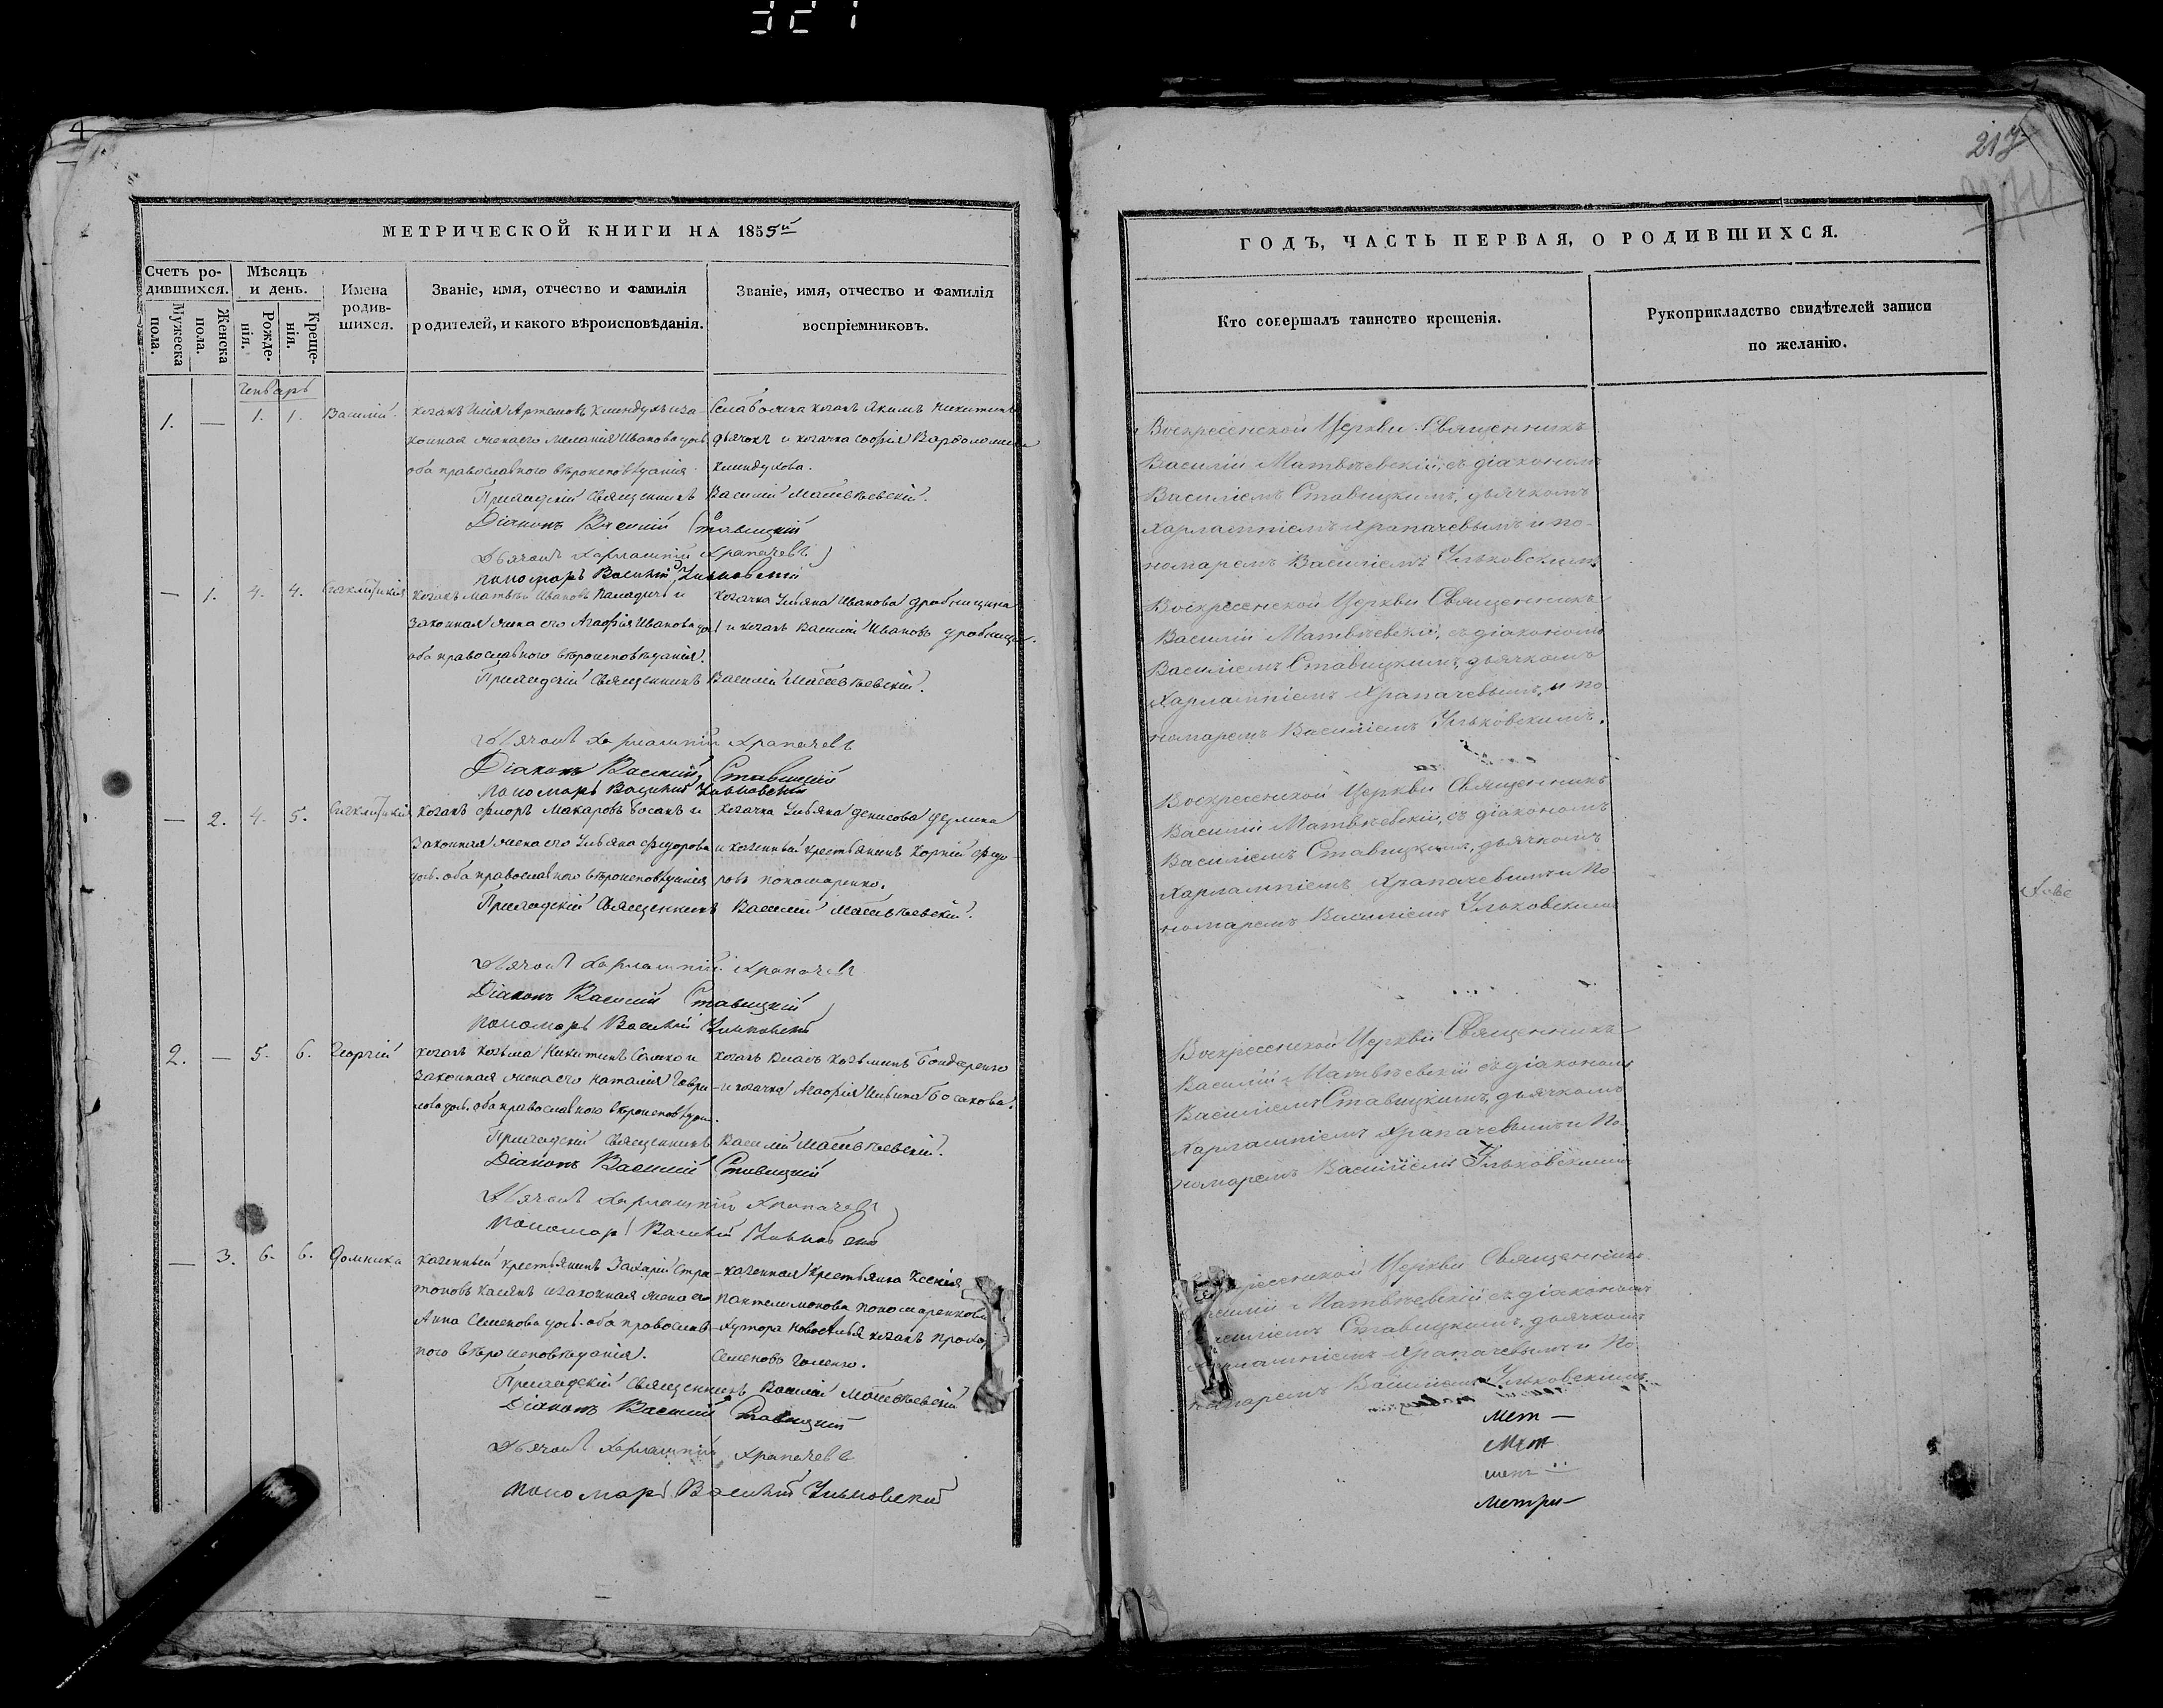 321
4
МЕТРИЧЕСКОЙ КНИГИ НА 1855й
Счетъ ро-
дившихся.
Мѣсяцъ
и день.
Мужеска
пола.
Женска
пола.
Рожде-
нія.
Креще-
нія.
Имена
родив-
шихся.
Званіе, имя, отчество и фамилія
родителей, и какого вѣроисповѣданія.
Званіе, имя, отчество и фамилія
воспріемниковъ.
Генварь
1. — 1. 1. Василій.
козакъ Илія Артемовъ и за
конная жена его Меланія Иванова
оба православного вѣроисповѣданія.
козакъ Акимъ Никитинъ
дьячокъ и козачка Софія
Приходскій Священникъ Василій Матвѣевскій.
Діаконъ Василій Ставицкій
Дьячокъ Харлампій Храпачевъ
пономарь Василій Ульковскій
— 1. 4. 4.
козакъ Матвѣй Ивановъ и
законная жена его Агафія Иванова
оба православного вѣроисповѣданія.
козачка Ульяна Иванова
и козакъ Василій Ивановъ
Приходскій Священникъ Василій Матвѣевскій.
Дьячокъ Харлампій Храпачевъ
Діаконъ Василій Ставицкій
пономарь Василій Ульковскій
— 2. 4. 5.
козакъ Макаровъ Босакъ и
законная жена его Ульяна Федорова
оба православного вѣроисповѣданія
козачка Ульяна Денисова
и казенный крестьянинъ Корній Федо-
ровъ Пономаренко.
Приходскій Священникъ Василій Матвѣевскій.
Дьячокъ Харлампій Храпачевъ
Діаконъ Василій Ставицкій
пономарь Василій Ульковскій
2. — 5. 6. Георгій
козакъ Козьма Никитинъ и
законная жена его Наталія Гаври-
лова оба православного
козакъ Власъ Козьминъ Бондаренко
и козачка Агафія Ильина Босакова.
Приходскій Священникъ Василій Матвѣевскій.
Діаконъ Василій Ставицкій
Дьячокъ Харлампій Храпачевъ
пономарь Василій Ульковскій
— 3. 6. 6. Домника
казенный крестьянинъ Захарій
и законная жена его
Анна Семенова оба православ-
ного вѣроисповѣданія.
казенная крестьянка Ксенія
Пантелимонова Пономаренкова
хутора козакъ Прохоръ
Семеновъ
Приходскій Священникъ Василій Матвѣевскій
Діаконъ Василій Ставицкій
Дьячокъ Харлампій Храпачевъ
пономарь Василій Ульковскій
217
ГОДЪ, ЧАСТЬ ПЕРВАЯ, О РОДИВШИХСЯ.
Кто совершалъ таинство крещенія.
Рукоприкладство свидѣтелей записи
по желанію.
Воскресенской Церкви Священникъ
Василій Матвѣевскій, съ діакономъ
Василіемъ Ставицкимъ, дьячкомъ
Харлампіемъ Храпачевымъ и по-
номаремъ Василіемъ Ульковскимъ
Воскресенской Церкви Священникъ
Василій Матвѣевскій, съ діакономъ
Василіемъ Ставицкимъ, дьячкомъ
Харлампіемъ Храпачевымъ, и по
номаремъ Василіемъ Ульковскимъ.
Воскресенской Церкви Священникъ
Василій Матвѣевскій, съ діакономъ
Василіемъ Ставицкимъ, дьячкомъ
Харлампіемъ Храпачевымъ и По
номаремъ Василіемъ Ульковскимъ
Воскресенской Церкви Священникъ
Василій Матвѣевскій съ діакономъ
Василіемъ Ставицкимъ, дьячкомъ
Харлампіемъ Храпачевымъ и По
номаремъ Василіемъ Ульковскимъ
Церкви Священникъ
Матвѣевскій съ діакономъ
Ставицкимъ, дьячкомъ
Храпачевымъ и По
номаремъ Василіемъ Ульковскимъ
Мет —
Мет
мет
Метри—